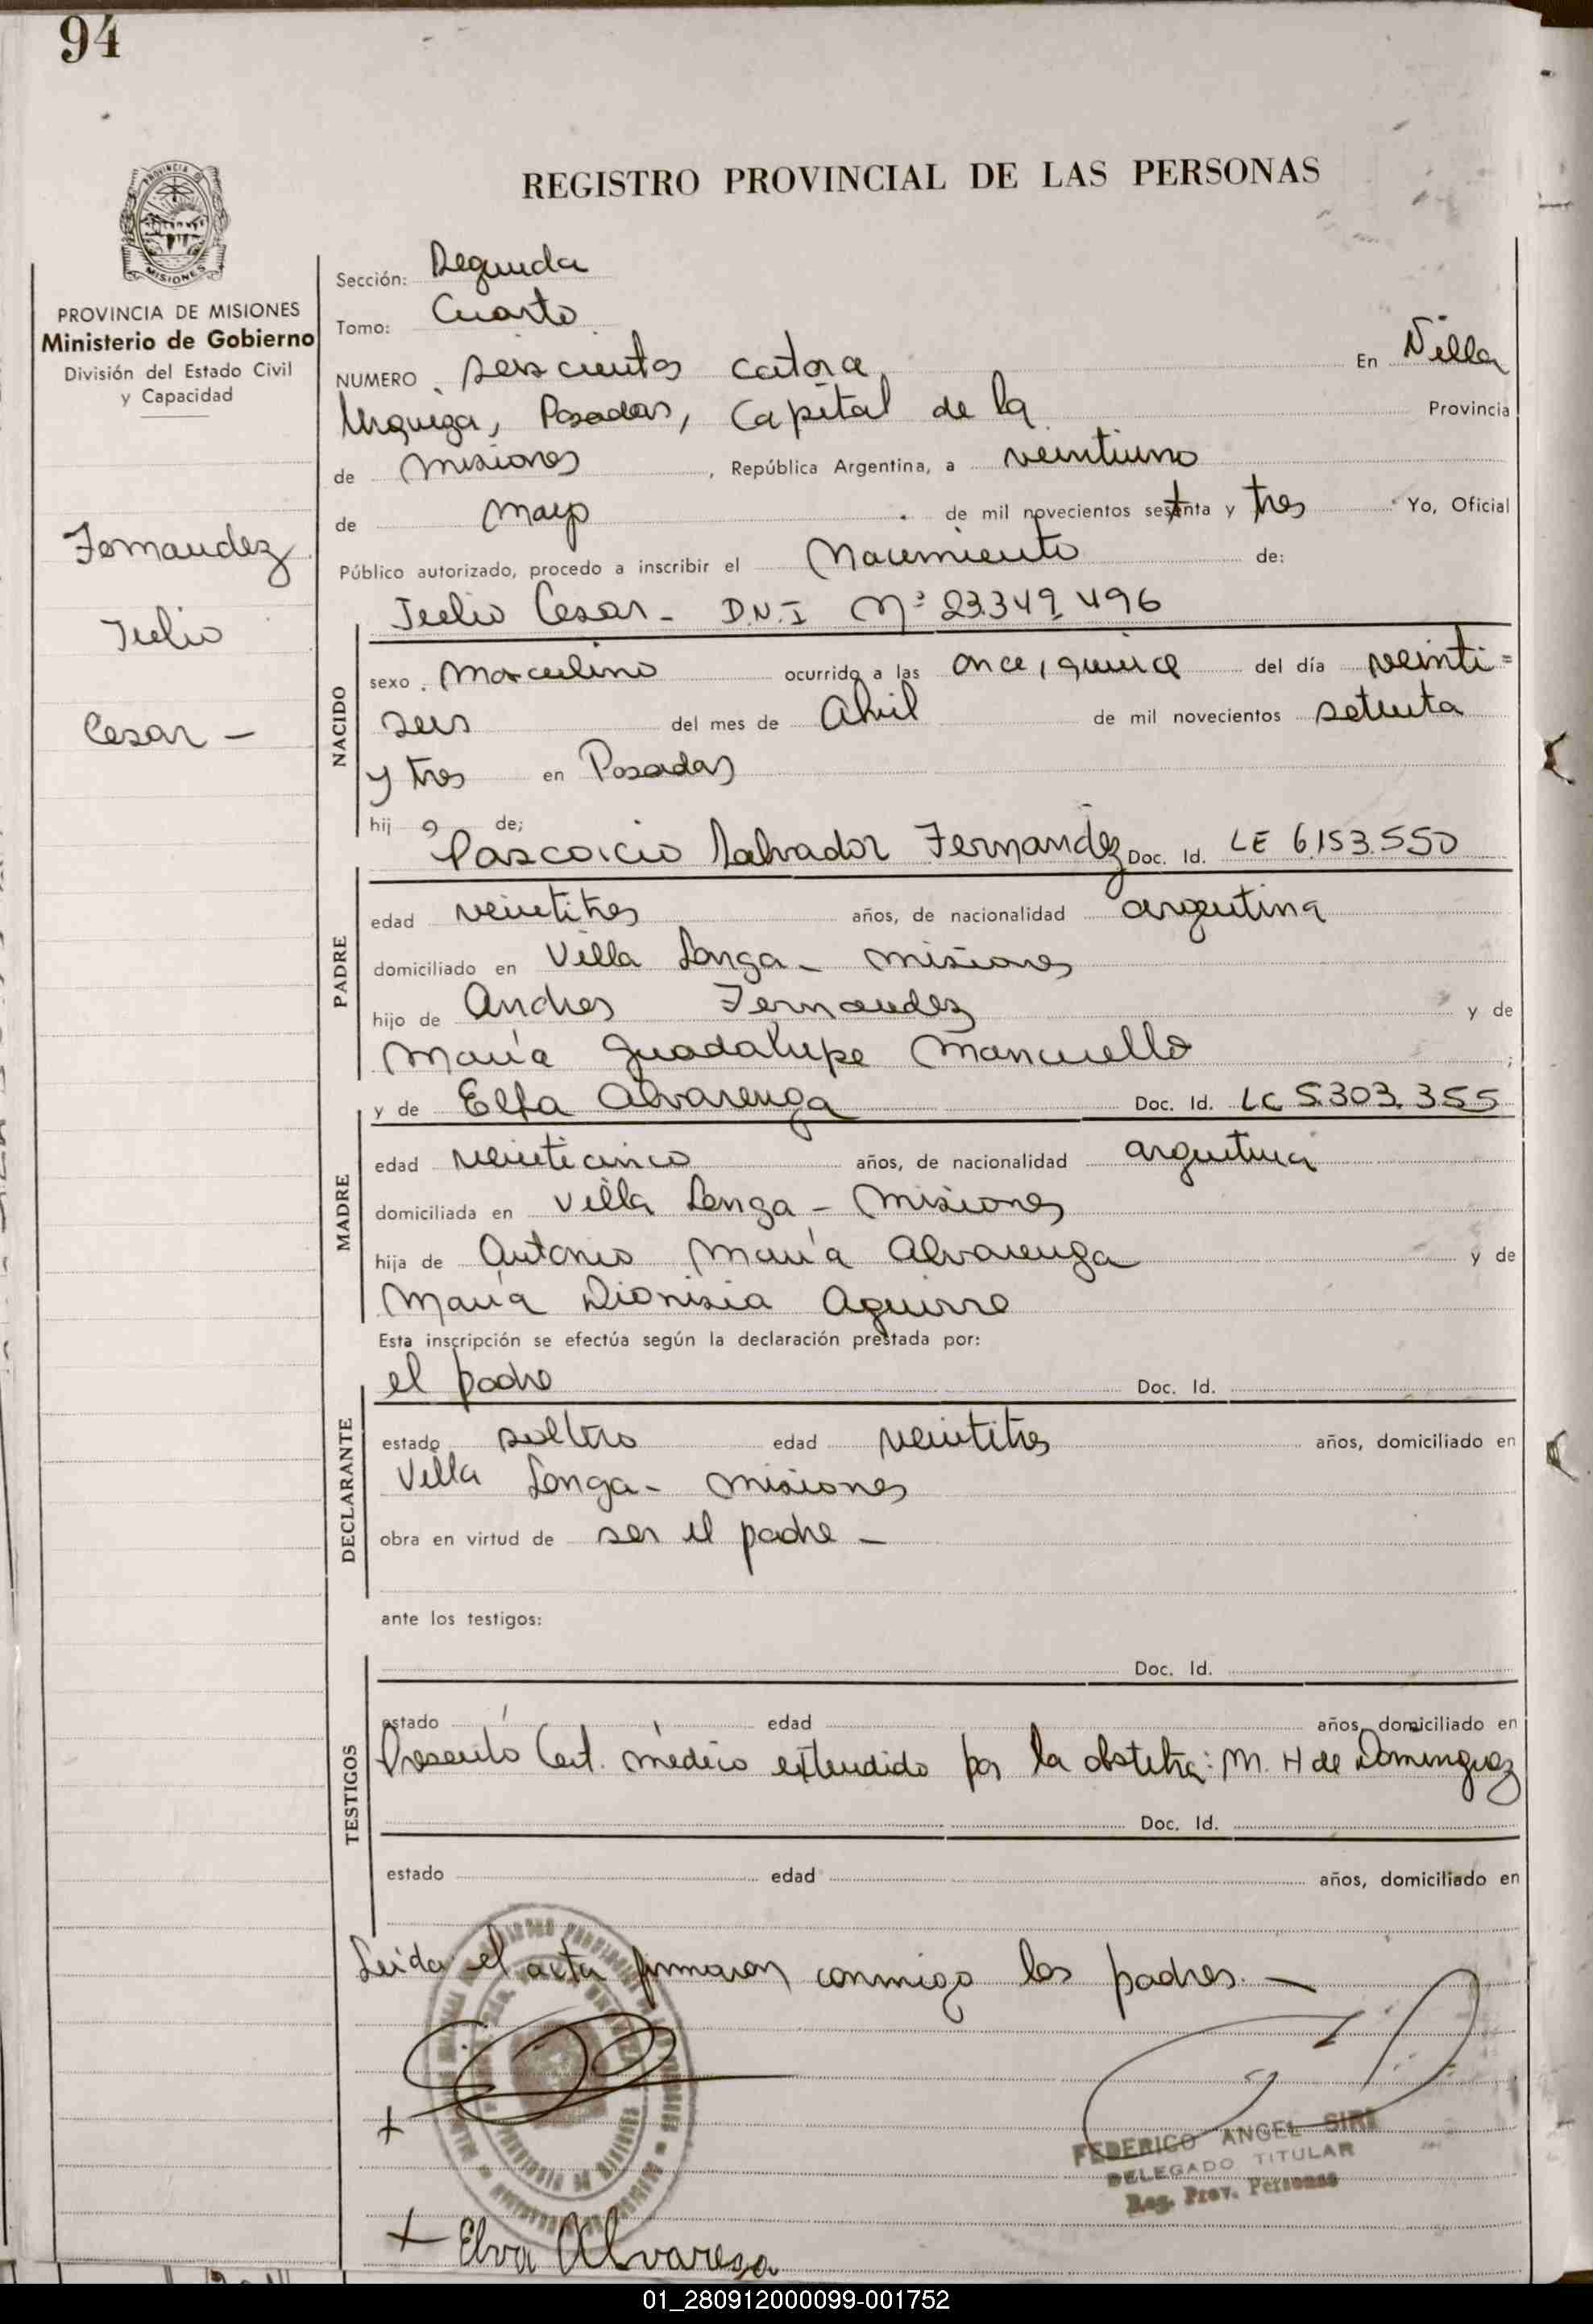 94
REGISTRO PROVINCIAL DE LAS PERSONAS
PROVINCIA DE MISIONES
Ministerio de Gobierno
División del Estado Civil
y Capacidad
Fernandez
Julio
Cesar –
Sección: Segunda
Tomo: Cuarto
NUMERO seiscientos catorce En Villa
Urquiza, Posadas, Capital de la Provincia
de Misiones, República Argentina, a veintiuno
de Mayo de mil novecientos setenta y tres Yo, Oficial
Público autorizado, procedo a inscribir el Nacimiento de:
Julio Cesar - D.N.I Nº 23.349.496
NACIDO
sexo Masculino ocurrido a las once, quince del día veinti=
seis del mes de Abril de mil novecientos setenta
y tres en Posadas
hijo de;
Salvador Fernandez Doc. Id. LE 6.153.550
PADRE
edad veintitres años, de nacionalidad argentina
domiciliado en Villa Longa - Misiones
hijo de Andres Fernandez y de
María Guadalupe Mancuello;
y de Elfa Alvarenga Doc. Id. LC 5.303.355
MADRE
edad veinticinco años, de nacionalidad argentina
domiciliada en Villa Longa - Misiones
hija de Antonio María Alvarenga y de
María Dionisia Aguirre
Esta inscripción se efectúa según la declaración prestada por:
el padre Doc. Id.
DECLARANTE
estado soltero edad veintitres años, domiciliado en
Villa Longa - Misiones
obra en virtud de ser el padre –
ante los testigos:
Doc. Id.
TESTIGOS
estado edad años, domiciliado en
Presentó Cert. médico extendido por la obstetra: M. H de Dominguez
Doc. Id.
estado edad años, domiciliado en
Leida el acta firmaron conmigo los padres. –
FEDERICO ANGEL SIRI
DELEGADO TITULAR
Reg. Prov. Personas
+ Elva Alvaresa
01_280912000099-001752